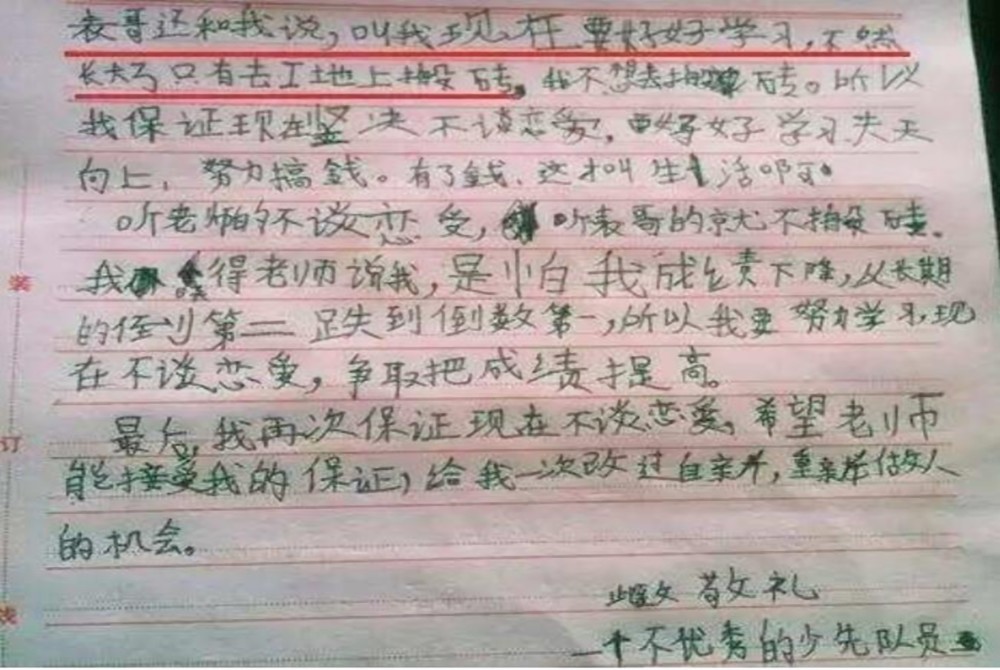 表哥还和我说，叫我现在要好好学习，不然
长大了只有去工地上搬砖。我不想去搬砖。所以
我保证现在坚决不谈恋爱，要好好学习失天
向上，努力搞錢。有了錢，这才叫生活啊。
听老师的不谈恋爱，听表哥的就不搬砖。
我得老师说我，是怕我成绩下降，从长期
的倒数第二跌到倒数第一，所以我要努力学习，现
在不谈恋爱，争取把成绩提高。
最后，我再次保证现在不谈恋爱。希望老师
能接受我的保证，给我一次改过自新，重新做人
的机会。
此致 敬礼
一个不优秀的少先队员
装
订
线